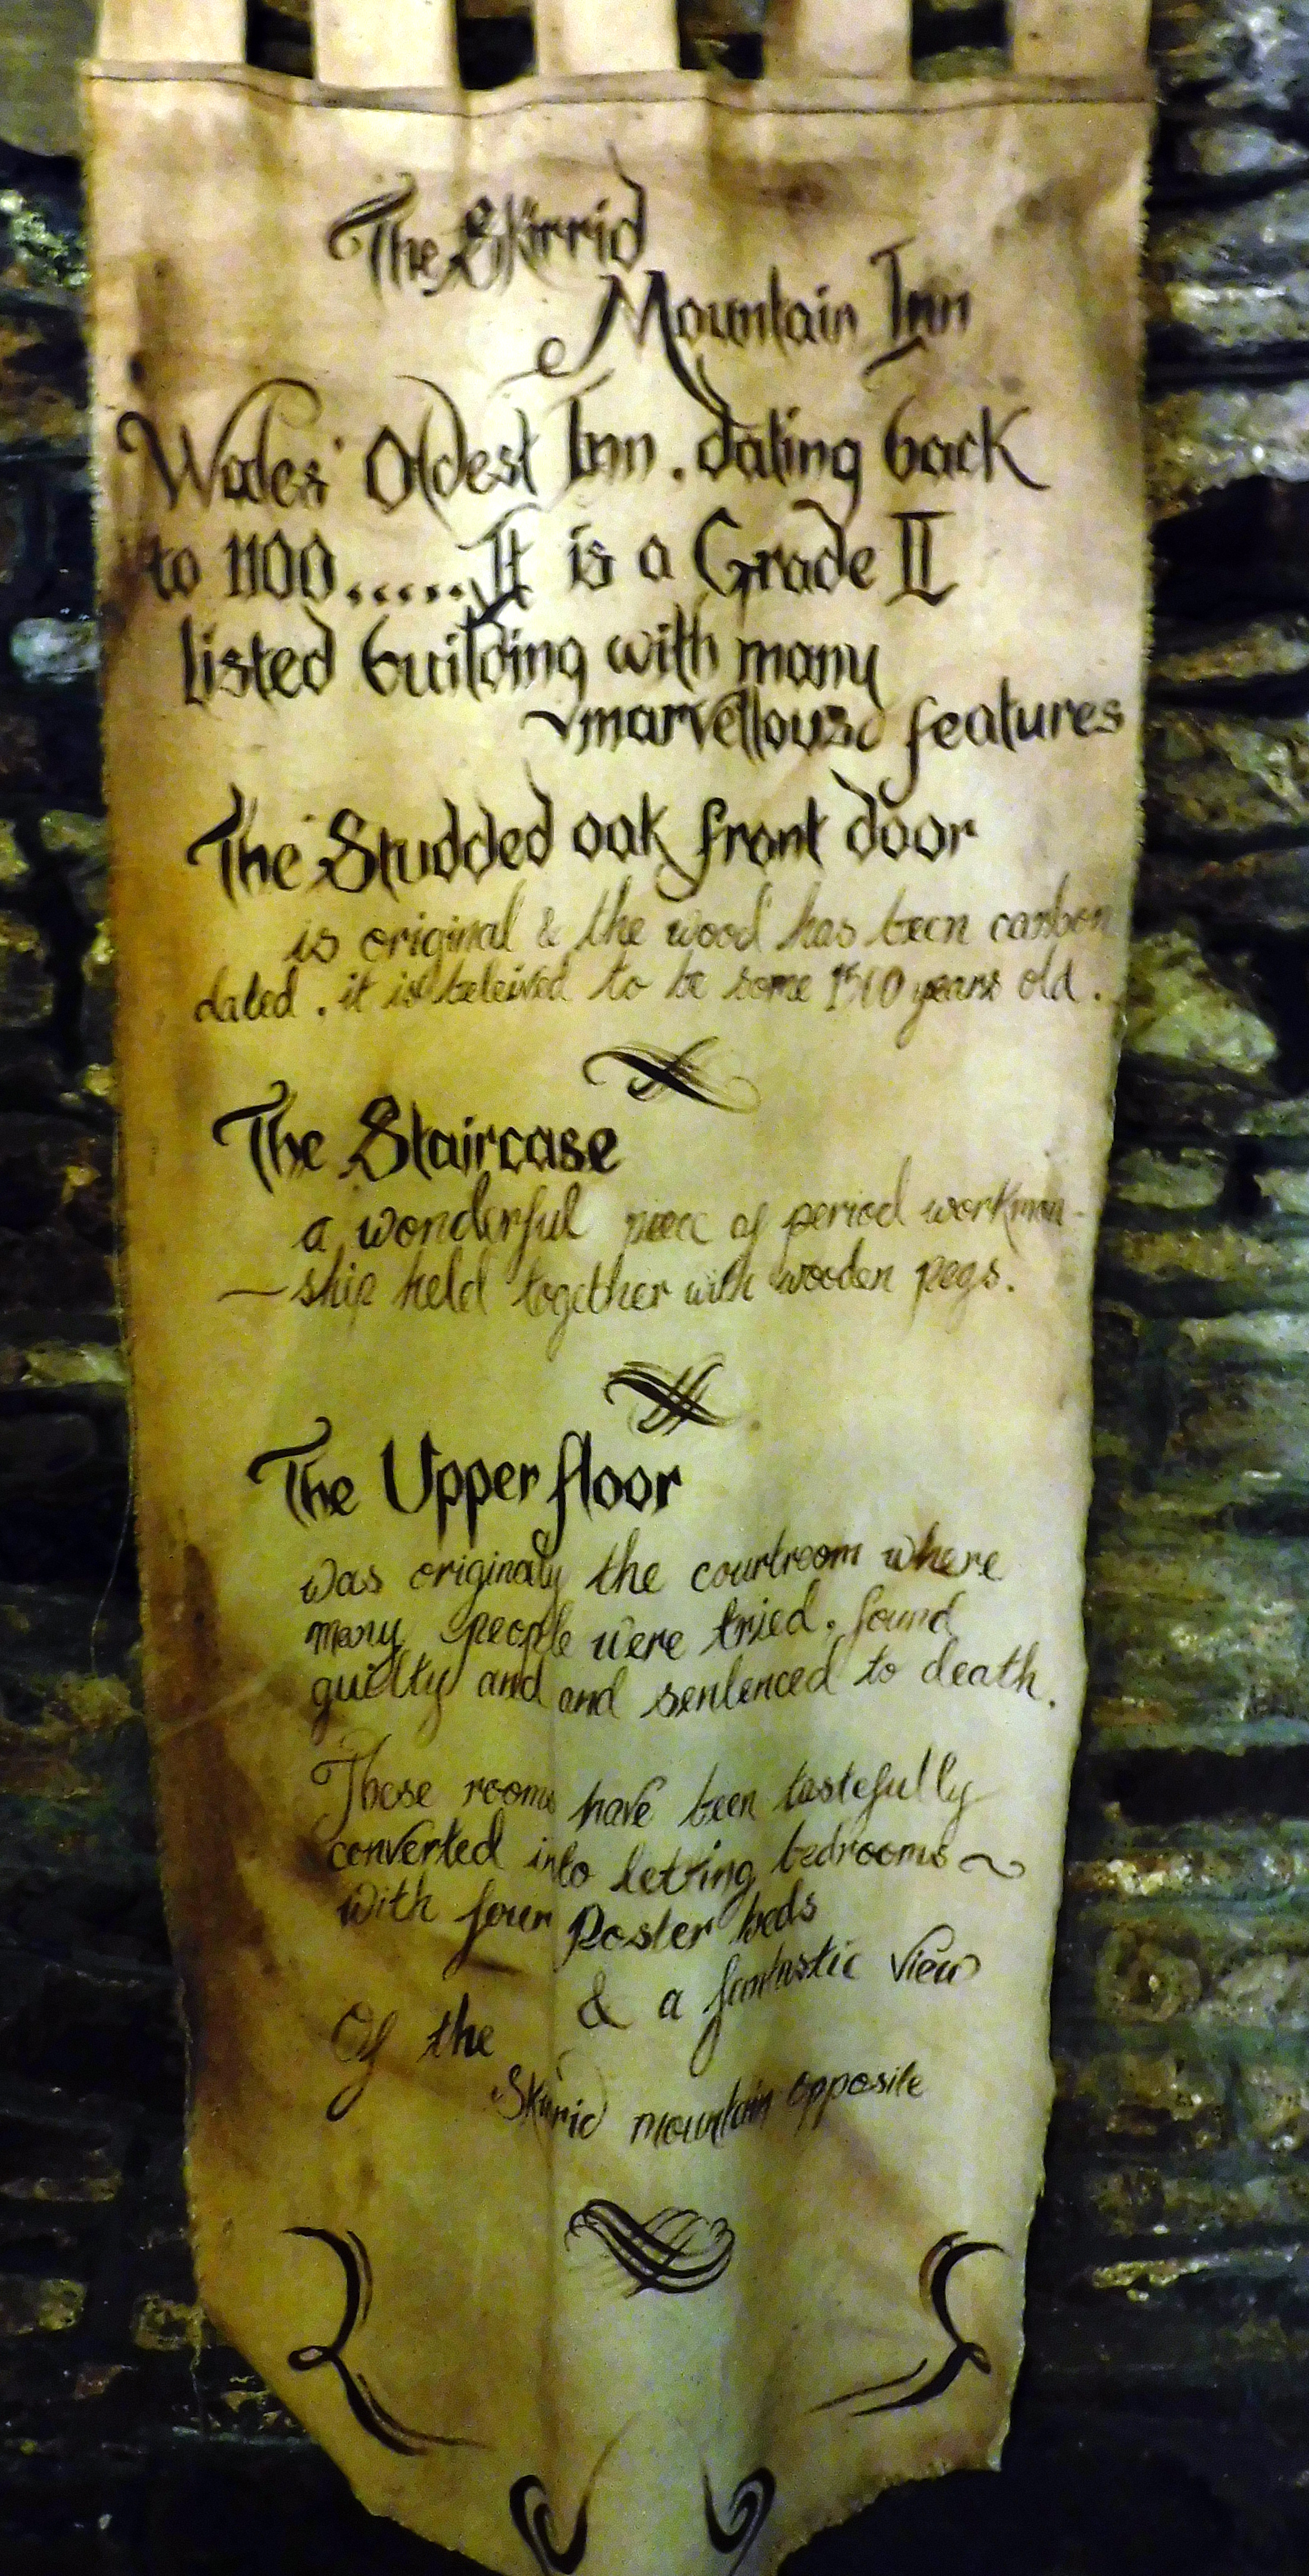 The Skirrid
Mountain Inn
Wales' Oldest Inn. dating back
to 1100..... It is a Grade II
listed building with many
marvellous features
The Studded oak front door
is original & the wood has been carbon
dated. it is beleived to be some years old.
The Staircase
a wonderful piece of period workman-
-ship held together with wooden pegs.
The Upper floor
was originaly the courtroom where
many people were tried. found
guilty and and sentenced to death.
These rooms have been tastefully
converted into letting bedrooms ~
with four Poster beds
& a fantastic view
Of the
Skirrid mountain opposite